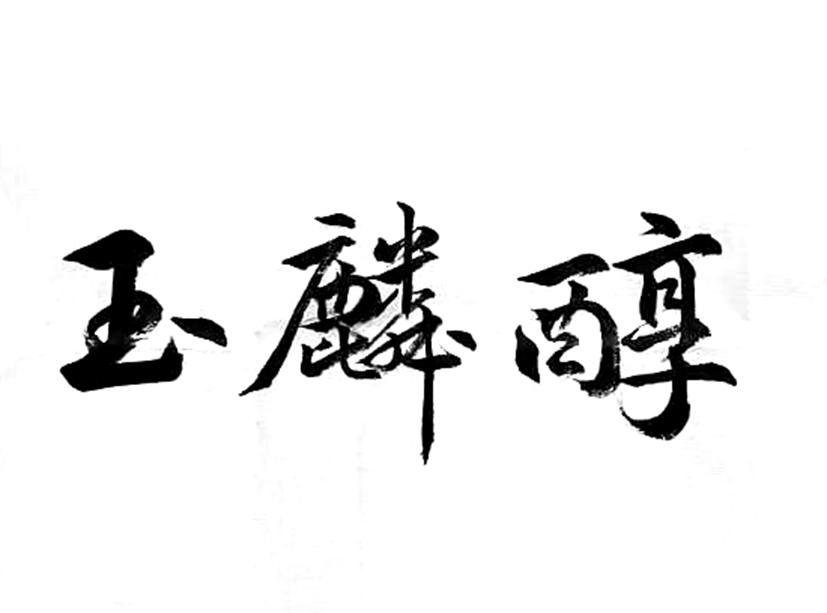 玉麟醇